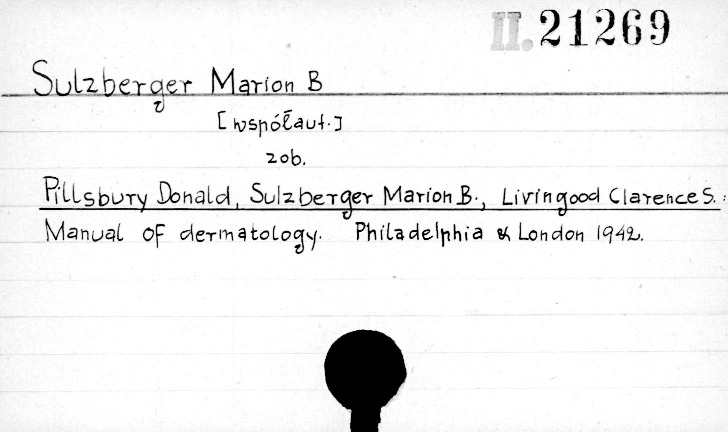 II. 21269
Sulzberger Marion B
[współaut.]
zob.
Pillsbury Donald, Sulzberger Marion B., Livingood Clarence S. :
Manual of dermatology. Philadelphia & London 1942.